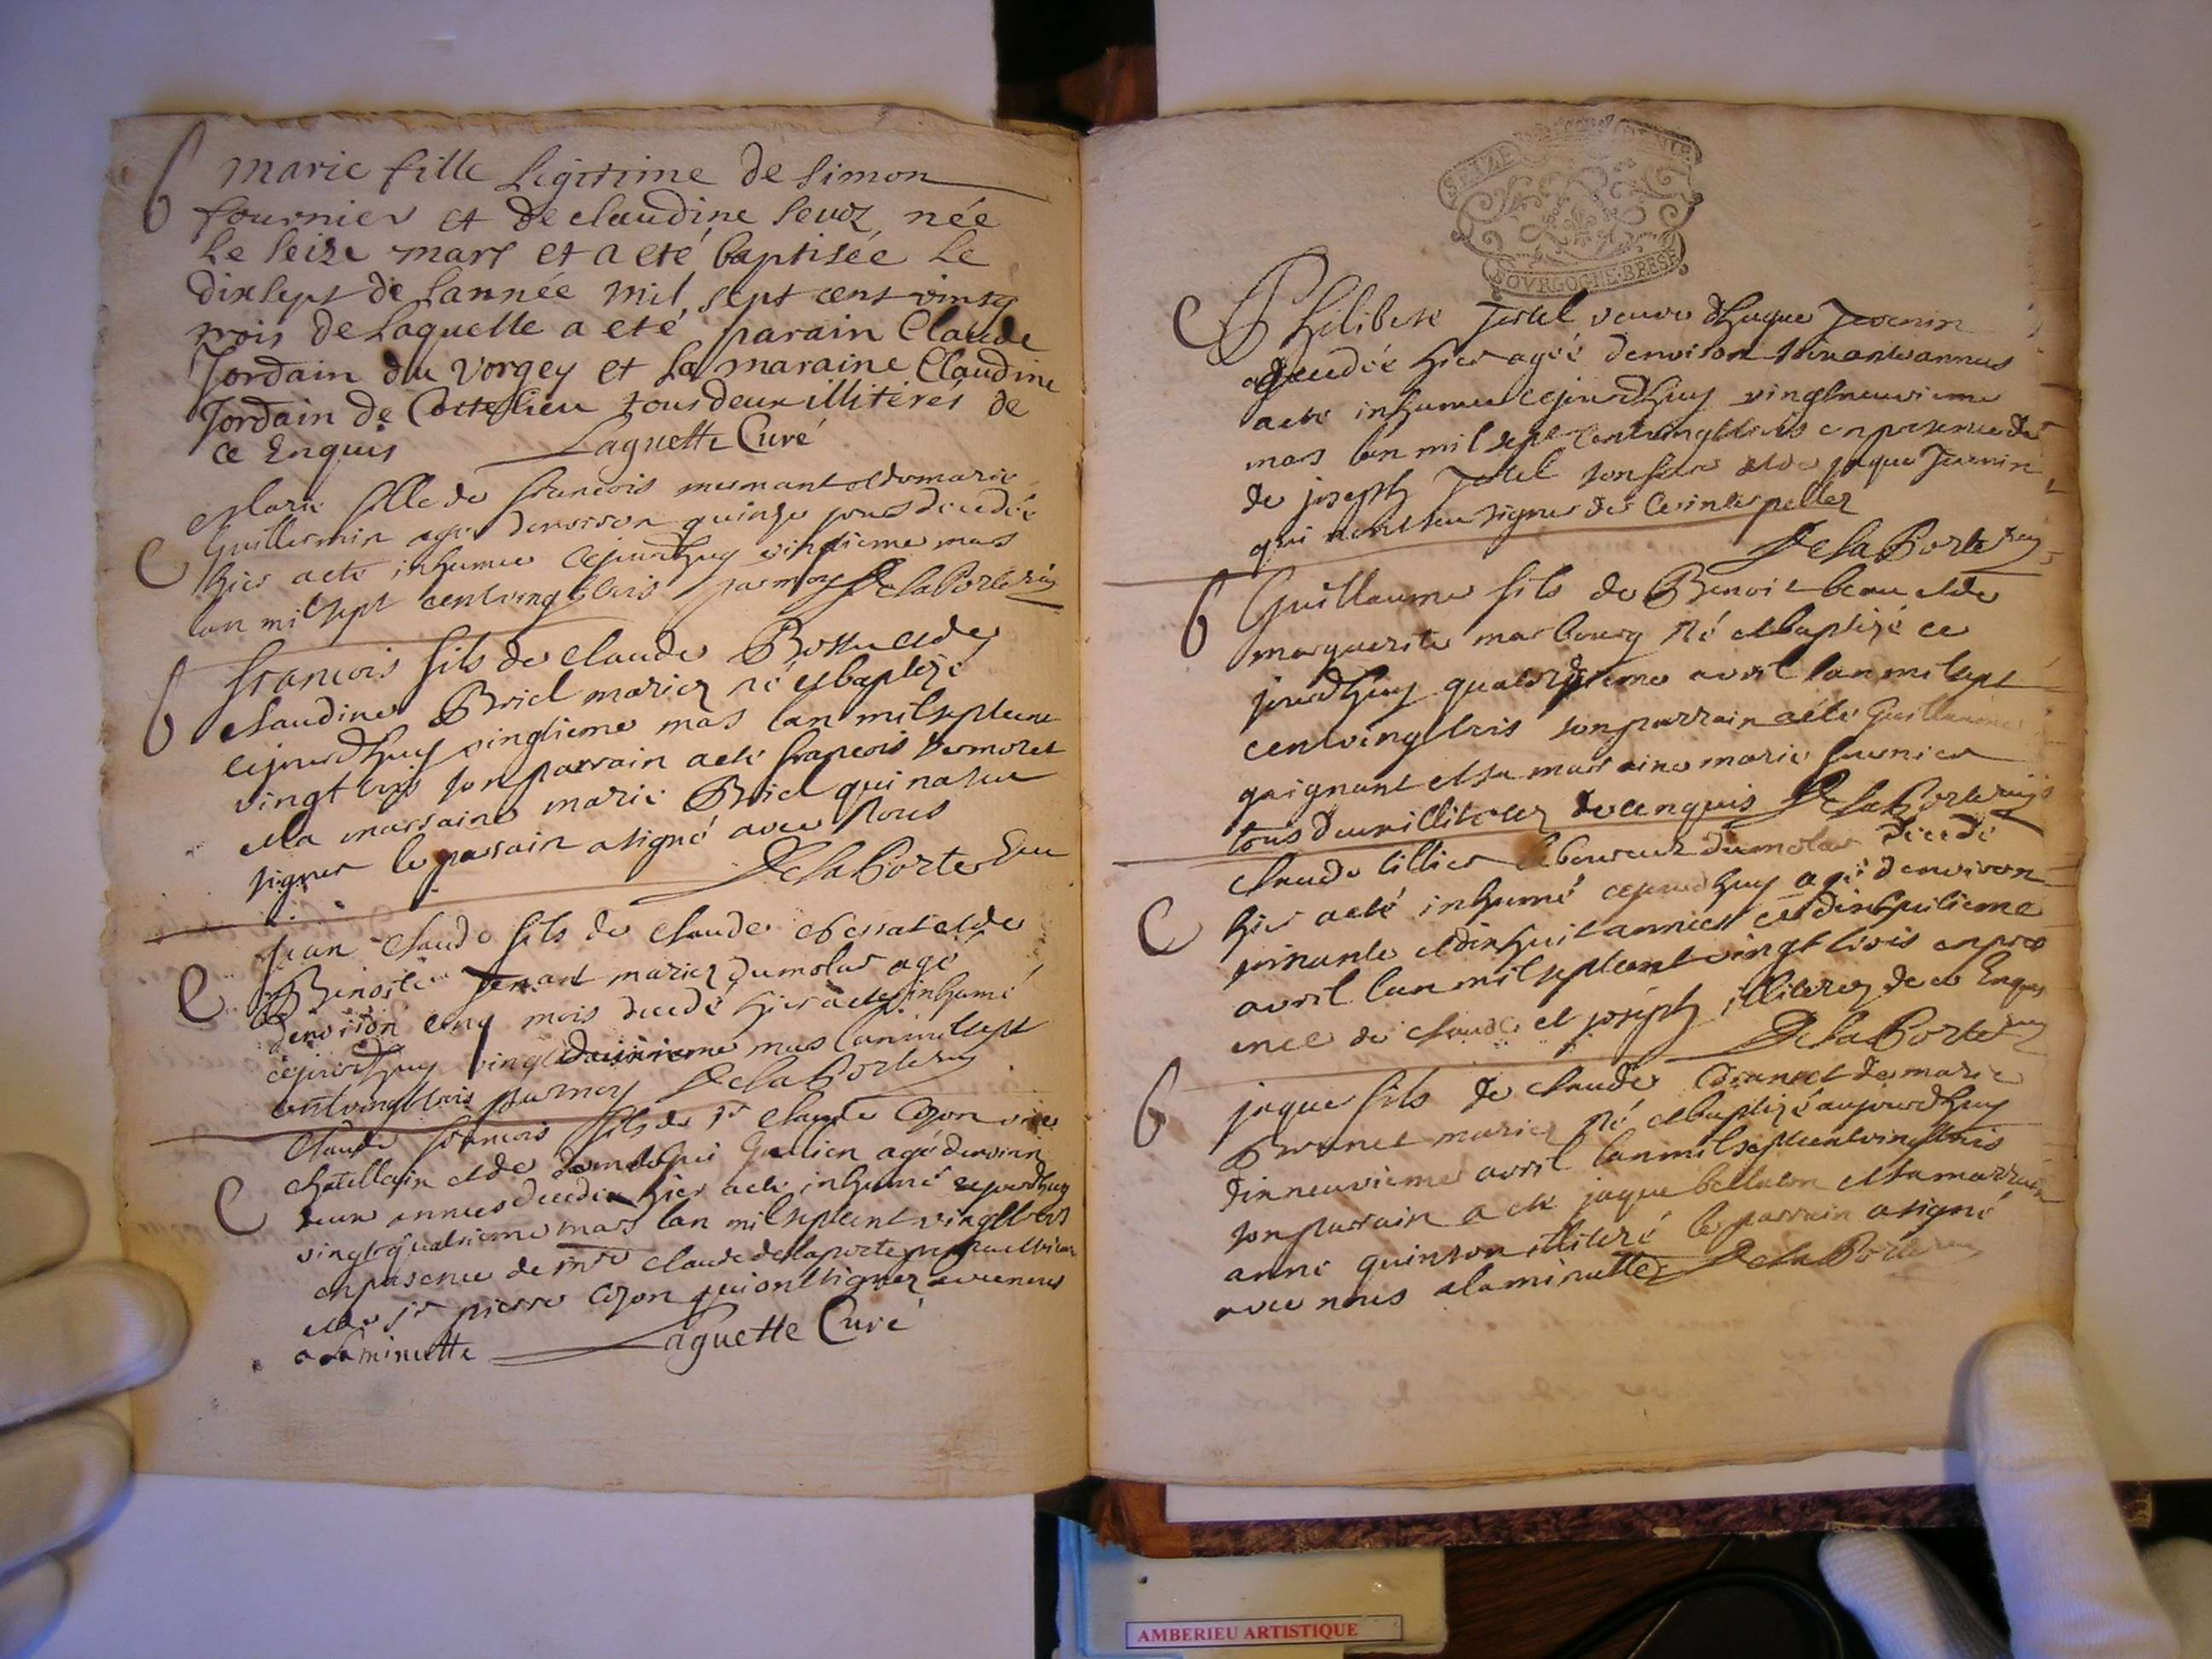 B
marie fille Legitime de Simon
fournier et de claudine née
Le seize mars et a eté baptisée Le
dixsept de Lannée mil sept cent vingt
trois de Laquelle a eté parain Claude
Jordain du Vorgey et La maraine Claudine
Jordain de tous deux illiterés de
ce Enquis Laguette Curé
C
Marie fille de francois et de marie
Guillermin agée denviron quinze jours decedée
hier a eté inhumée cejourdhuy vingtieme mars
lan mil sept cent vingt trois par moy DelaPorte
B
francois fils de claude et de
claudine Briel mariez né et baptizé
cejourdhuy vingtieme mars lan mil sept cent
vingt trois son parrain a eté francois
et sa marraine marie Briel qui na sceu
signer le parrain a signé avec Nous
DelaPorte
C
Jean Claude fils de claude et de
Benoite mariez du molar agé
denviron cinq mois decedé hier a eté inhumé
cejourdhuy vingt deuxieme mars lan mil sept
cent vingt trois par moy DelaPorte
C
Claude francois fils de Sr Claude Cozon vice
chatellain et de agé denviron
deux années decedé hier a eté inhumé cejourdhuy
vingt quatrieme mars lan mil sept cent vingt trois
en presence de mre claude delaporte
et de Sr pierre Cozon qui ont signez avec nous
a La minutte Laguette Curé
SEIZE
BOVRGOGNE·BRESSE
C
Philiberte veuve dhugue Juvenin
decedée hier agée denviron années
a eté inhumée cejourdhuy vingt neuvieme
mars lan mil sept cent vingt trois en presence de
de joseph son frere et de jaque Juvenin
qui nont sceu signer de ce interpellez
DelaPorte
B
Guillaume fils de Benoit beau et de
marguerite marbourg Né et baptizé ce
jourdhuy quatorzieme avril lan mil sept
cent vingt trois son parrain a eté Guillaume
guignant et sa marraine marie fournier
tous deux illiterez de ce enquis DelaPorte
C
Claude tillier laboureur du molar decedé
hier a eté inhumé cejourdhuy agé denviron
et dix huit années ce dix huitieme
avril lan mil sept cent vingt trois en pres
ence de claude et joseph illiterez de ce Enquis
DelaPorte
B
jaque fils de claude et de marie
Brunet mariez Né et baptizé aujourdhuy
dix neuvieme avril lan mil sept cent vingt trois
son parrain a eté jaque bellaton et sa marraine
anne quinson illiteré le parrain a signé
avec nous a la minutte DelaPorte
AMBERIEU ARTISTIQUE